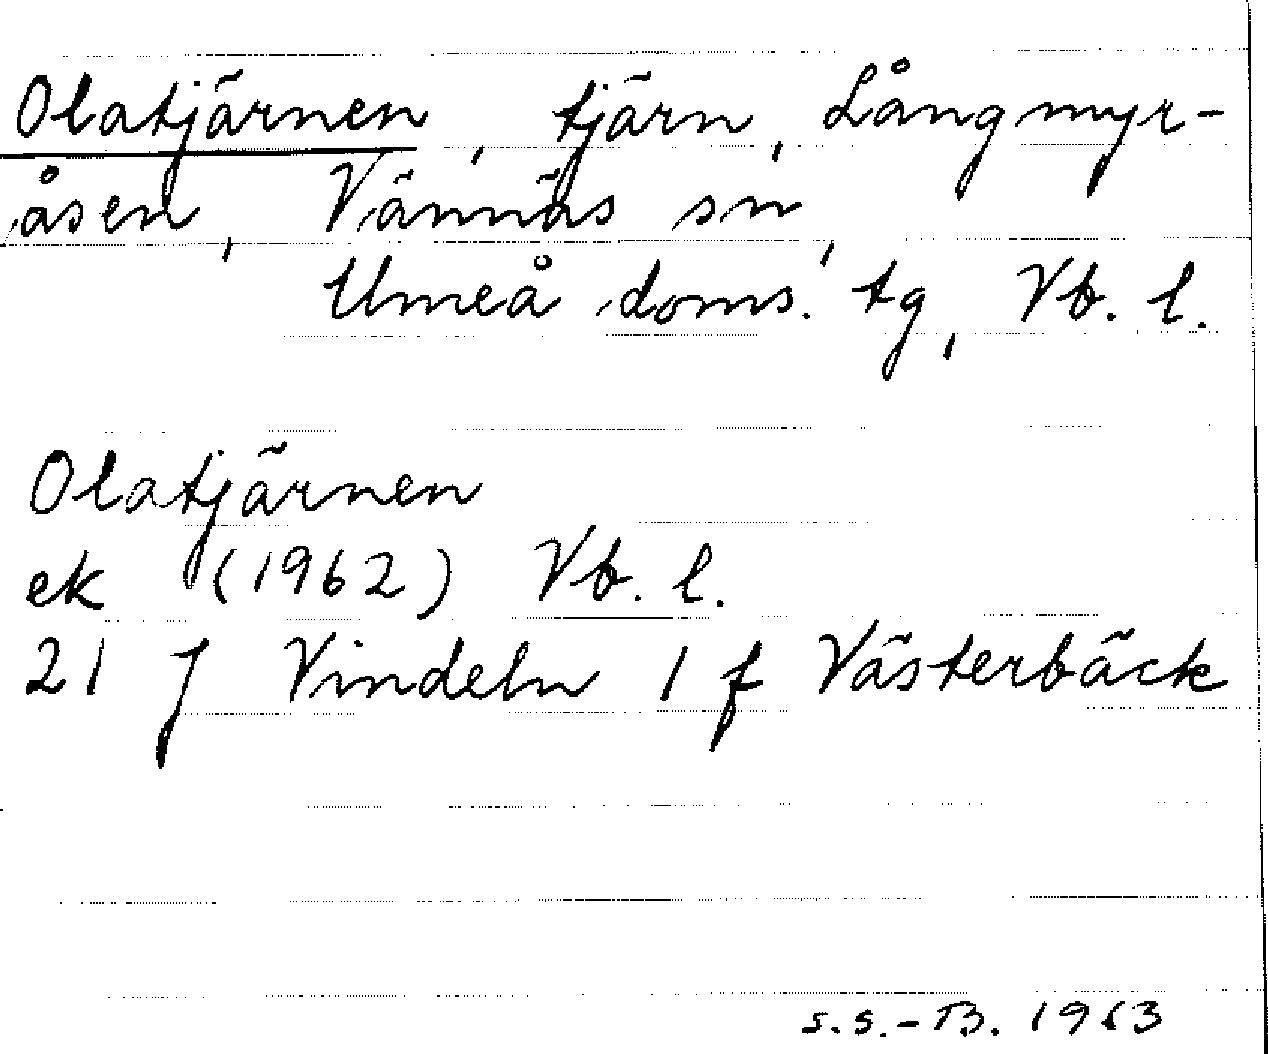 Olatjärnen, tjärn, Långmyr-
åsen, Vännäs sn,
Umeå doms. tg, Vb. l.
Olatjärnen
ek (1962) Vb. l.
21 J Vindeln 1 f Västerbäck
S.S.-B. 1963